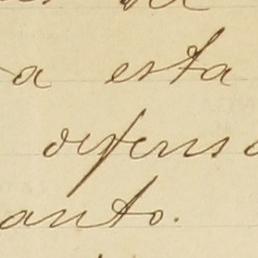 a esta
defensa
anto.